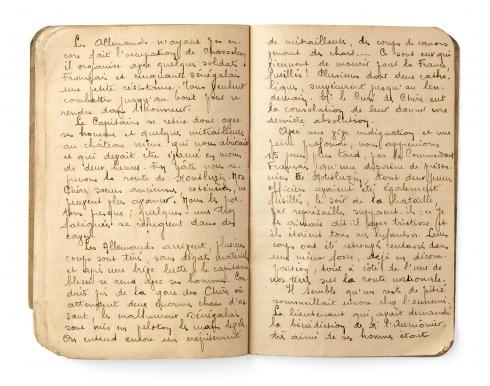 Les Allemands n'ayant pas en-
core fait l'occupation de Chasselay
il organise avec quelques soldats
Français et cinquante sénégalais
une petite résistance. Tous veulent
combattre jusqu'au bout pour se
rendre dans l'honneur.
Le Capitaine se retire donc avec
ses hommes et quelques mitrailleuses
au château même qui nous abritait
et qui devait être évacué
de deux heures. En hâte nous re-
prenons la route de Montluzin. Nos
Chères sœurs anciennes, exténuées, ne
peuvent plus avancer. Nous les por-
tons presque; quelques unes très
fatiguées se
Les Allemands arrivent, plusieurs
coups sont tirés, sans dégats matériels
et après une brève lutte le capitaine
blessé se rend avec ses hommes. Con-
duits près de la gare des Chères où
attendent deux énormes chars d'as-
saut, les malheureux sénégalais
sont mis en peloton les mains levées.
On entend encore un crépitement
de mitrailleuses, des coups de canons
venant des chars... Ce sont eux qui
viennent de mourir pour la France
fusillés! Plusieurs dont deux catho-
liques, survécurent jusqu'au len-
demain. Mr le Curé de Chères eut
la consolation de leur donner une
dernière absolution.
Avec une vive indignation et une
peine profonde, nous apprenions
15 jours plus tard, par le Commandant
Français qu'une dizaine de prison-
niers de Montluzin, dont deux
officiers avaient été également
fusillés, le soir de la bataille
par représailles supposait-il: "Je
les aimais dit-il avec tristesse et
ils étaient tous mes enfants." Leurs
corps ont été retrouvés entassés dans
une même fosse, déjà en décom-
position, tout à côté de l'une de
nos terres sur la route nationale.
Il semble qu'un reste de pitié
sommeillait encore chez l'ennemi.
Le lieutenant qui avait demandé
la bénédiction de Mr l'Aumônier,
très aimé de ses hommes était